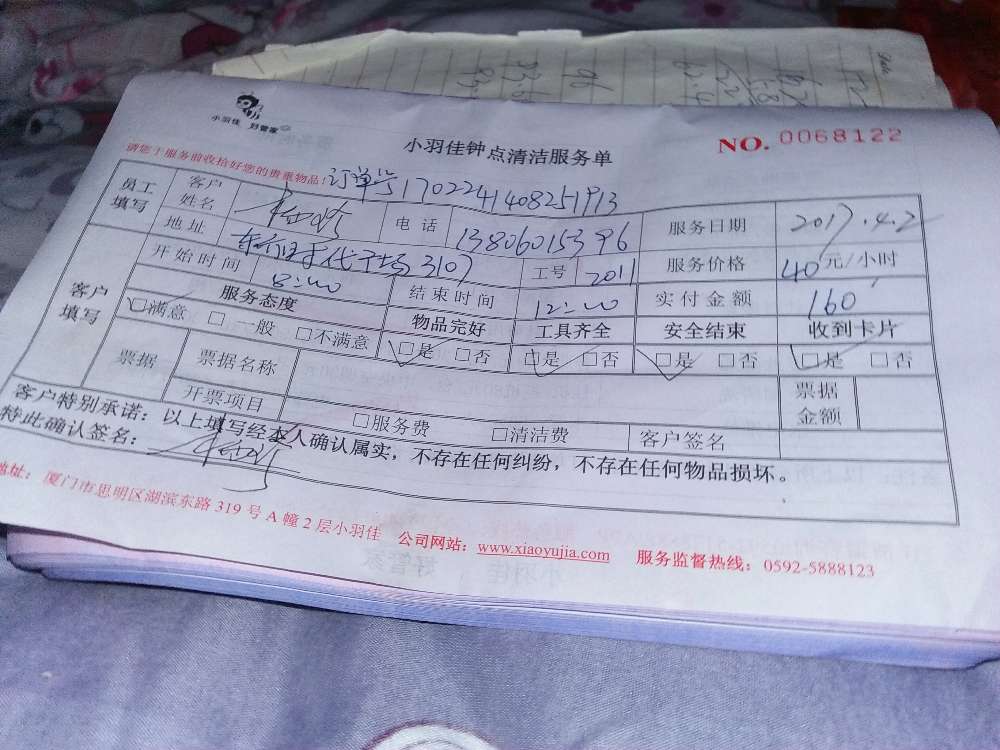 小羽佳 好管家
小羽佳钟点清洁服务单
NO. 0068122
请您于服务前收拾好您的贵重物品!
订单号 1702241408251913
员工填写 客户姓名 电话 13806015396 服务日期 2017.4.2
地址 3107 工号 2011 服务价格 40元/小时
客户填写 开始时间 8:00 结束时间 12:00 实付金额 160
服务态度 物品完好 工具齐全 安全结束 收到卡片
□满意 □一般 □不满意 □是 □否 □是 □否 □是 □否 □是 □否
票据 票据名称 票据金额
开票项目 □服务费 □清洁费 客户签名
客户特别承诺：以上填写经本人确认属实，不存在任何纠纷，不存在任何物品损坏。
特此确认签名：
地址：厦门市思明区湖滨东路 319 号 A 幢 2 层小羽佳 公司网站：www.xiaoyujia.com 服务监督热线：0592-5888123